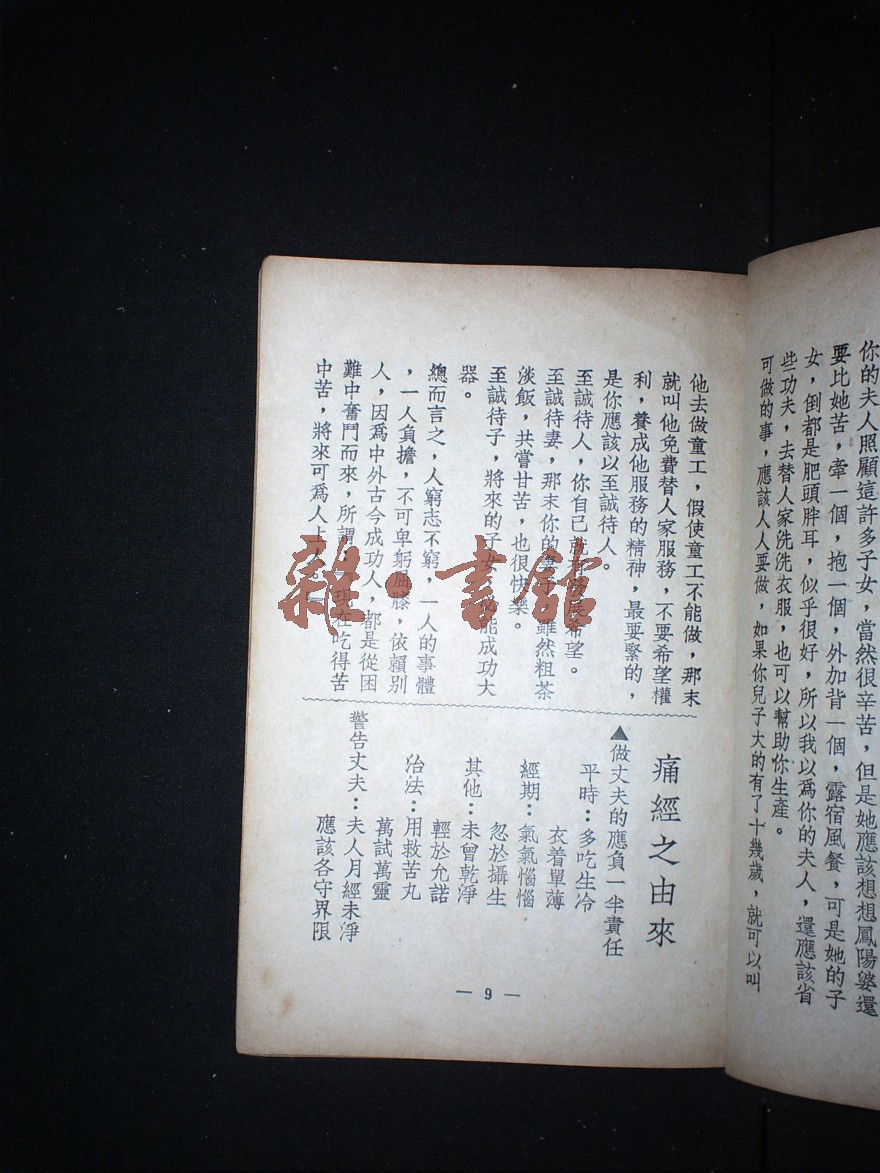 你的夫人照顧這許多子女，當然很辛苦，但是她應該想想鳳陽婆還
要比她苦，牽一個，抱一個，外加背一個，露宿風餐，可是她的子
女，倒都是肥頭胖耳，似乎很好，所以我以爲你的夫人，還應該省
些功夫，去替人家洗洗衣服，也可以幫助你生產。
可做的事，應該人人要做，如果你兒子大的有了十幾歲，就可以叫
他去做童工，假使童工不能做，那末
就叫他免費替人家服務，不要希望權
利，養成他服務的精神，最要緊的，
是你應該以至誠待人。
至誠待人，你自己就有發展希望。
至誠待妻，那末你的妻子雖然粗茶
淡飯，共嘗甘苦，也很快樂。
至誠待子，將來的子女必能成功大
器。
總而言之，人窮志不窮，一人的事體
，一人負擔，不可卑躬屈膝，依賴別
人，因爲中外古今成功人，都是從困
難中奮鬥而來，所謂：「現在吃得苦
中苦，將來可爲人上人。」
痛經之由來
▲做丈夫的應負一半責任
平時：多吃生冷
衣着單薄
經期：氣氣惱惱
忽於攝生
其他：未曾乾淨
輕於允諾
治法：用救苦丸
萬試萬靈
警告丈夫：夫人月經未淨
應該各守界限
— 9 —
雜·書館